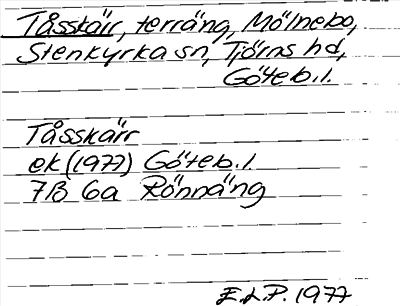 Tåsskärr, terräng, Mölnebo,
Stenkyrka sn, Tjörns hd,
Göteb.l.
Tåsskärr
ek (1977) Göteb.l.
7B 6a Rönnäng
E.L.P. 1977